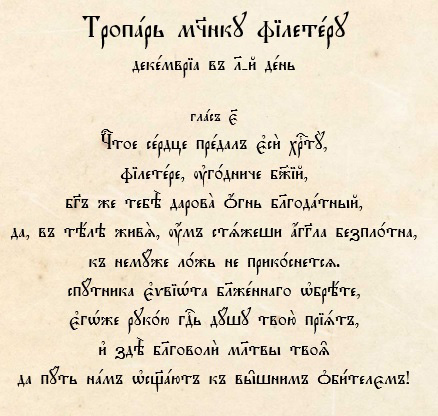 Тропа́рь мч҃нкꙋ фїлете́рꙋ
деке́мврїа въ л҃_й де́нь
гла́съ є҃
Чⷭ҇тое се́рдце пре́далъ є҆сѝ хрⷭ҇тꙋ̀,
фїлете́ре, ᲂу҆го́дниче бж҃їй,
бг҃ъ же тебѣ̀ дарова̀ ѻ҆́гнь бл҃года́тный,
да, въ тѣ́лѣ живѧ̀, ᲂу҆́мъ стѧ́жеши а҆́гг҃ла безпло́тна,
къ немꙋже ло́жь не прикоснетсѧ.
спꙋтника є҆ѵвїѡ́та бл҃же́ннаго ѡ҆брѣ́те,
є҆гѡ́же рꙋко́ю гдⷭ҇ь дꙋ́шꙋ твою̀ прїѧ́тъ,
и҆ здѣ̀ бл҃говолѝ мл҃твы твоѧ̑
да пꙋ́ть на́мъ ѡ҆свѣща́ютъ къ вы̑шнимъ ѻ҆би́телємъ!